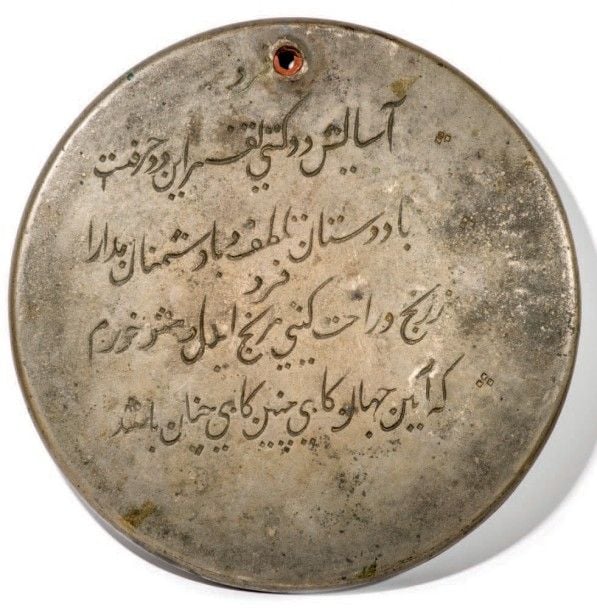 فرد
آسایش دو کیتی تفسیر این دو حرفست
با دوستان تلطف و با دشمنان مدارا
فرد
ز رنج و راحت کیتی مرنج ایدل مشو خورم
که آیین جهان کاهی چنین کاهی چنان باشد